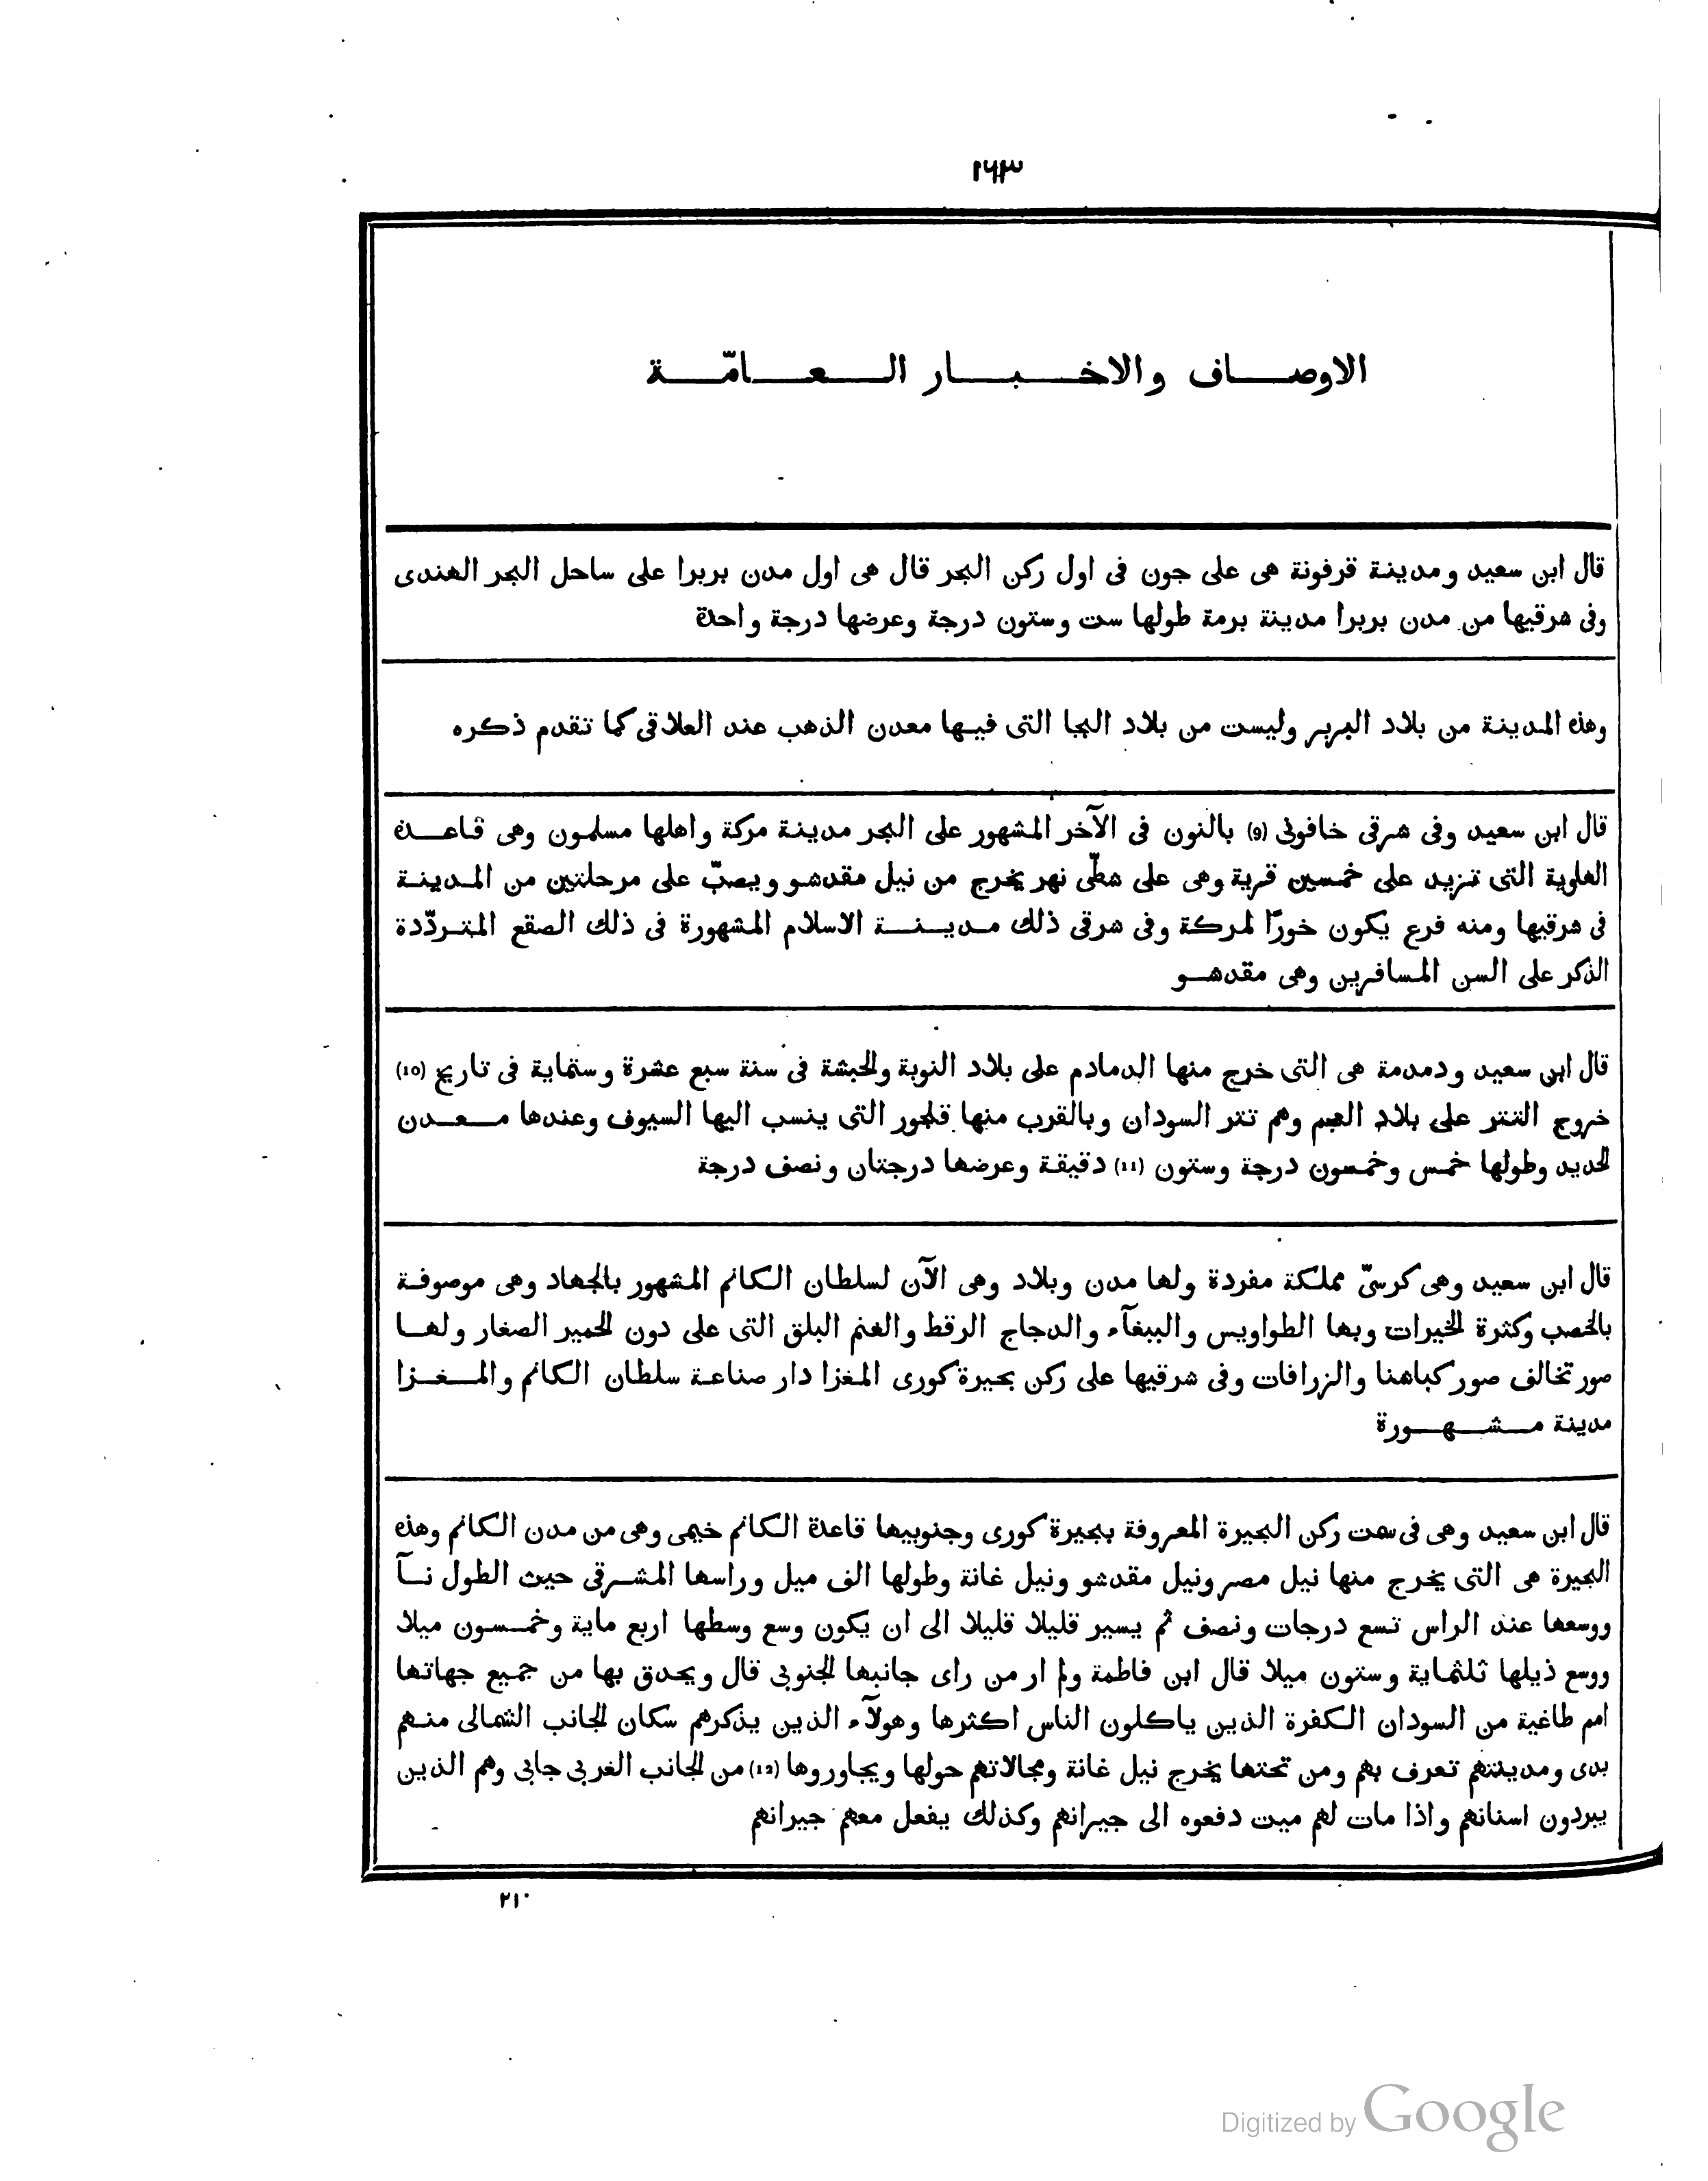 ١٦٣
الاوصاف والاخبار العامّة
قال ابن سعيد ومدينة قرفونة هى على جون فى اول ركن البحر قال هى اول مدن بربرا على ساحل البحر الهندى
وفى شرقيها من مدن بربرا مدينة برمة طولها ست وستون درجة وعرضها درجة واحدة
وهذه المدينة من بلاد البربر وليست من بلاد البجا التى فيها معدن الذهب عند العلاقى كما تقدم ذكره
قال ابن سعيد وفى شرقى خافونى (9) بالنون فى الآخر المشهور على البحر مدينة مركة واهلها مسلمون وهى قاعدة
الهاوية التى تزيد على خمسين قرية وهى على شطّى نهر يخرج من نيل مقدشو ويصبّ على مرحلتين من المدينة
فى شرقيها ومنه فرع يكون خورًا لمركة وفى شرقى ذلك مدينة الاسلام المشهورة فى ذلك الصقع المتردّدة
الذكر على السن المسافرين وهى مقدشو
قال ابن سعيد ودمدمة هى التى خرج منها الدمادم على بلاد النوبة والحبشة فى سنة سبع عشرة وستماية فى تاريخ (10)
خروج التتر على بلاد العجم وهم تتر السودان وبالقرب منها قلجور التى ينسب اليها السيوف وعندها معدن
الحديد وطولها خمس وخمسون درجة وستون (11) دقيقة وعرضها درجتان ونصف درجة
قال ابن سعيد وهى كرسىّ مملكة مفردة ولها مدن وبلاد وهى الآن لسلطان الكانم المشهور بالجهاد وهى موصوفة
بالخصب وكثرة الخيرات وبها الطواويس والببغآء والدجاج الرقط والغنم البلق التى على دون الحمير الصغار ولها
صور تخالف صور كباشنا والزرافات وفى شرقيها على ركن بحيرة كورى المغزا دار صناعة سلطان الكانم والمغزا
مدينة مشهورة
قال ابن سعيد وهى فى سمت ركن البحيرة المعروفة ببحيرة كورى وجنوبيها قاعدة الكانم خيمى وهى من مدن الكانم وهذه
البحيرة هى التى يخرج منها نيل مصر ونيل مقدشو ونيل غانة وطولها الف ميل وراسها المشرقى حيث الطول نـآ
ووسعها عند الراس تسع درجات ونصف ثم يسير قليلا قليلا الى ان يكون وسع وسطها اربع ماية وخمسون ميلا
ووسع ذيلها ثلثماية وستون ميلا قال ابن فاطمة ولم ار من راى جانبها الجنوبى قال ويحدق بها من جميع جهاتها
امم طاغية من السودان الكفرة الذين ياكلون الناس اكثرها وهولآء الذين يذكرهم سكان الجانب الشمالى منهم
بدى ومدينتهم تعرف بهم ومن تحتها يخرج نيل غانة ومجالاتهم حولها ويجاوروها (12) من الجانب الغربى جابى وهم الذين
يبردون اسنانهم واذا مات لهم ميت دفعوه الى جيرانهم وكذلك يفعل معهم جيرانهم
٢١٠
Digitized by Google